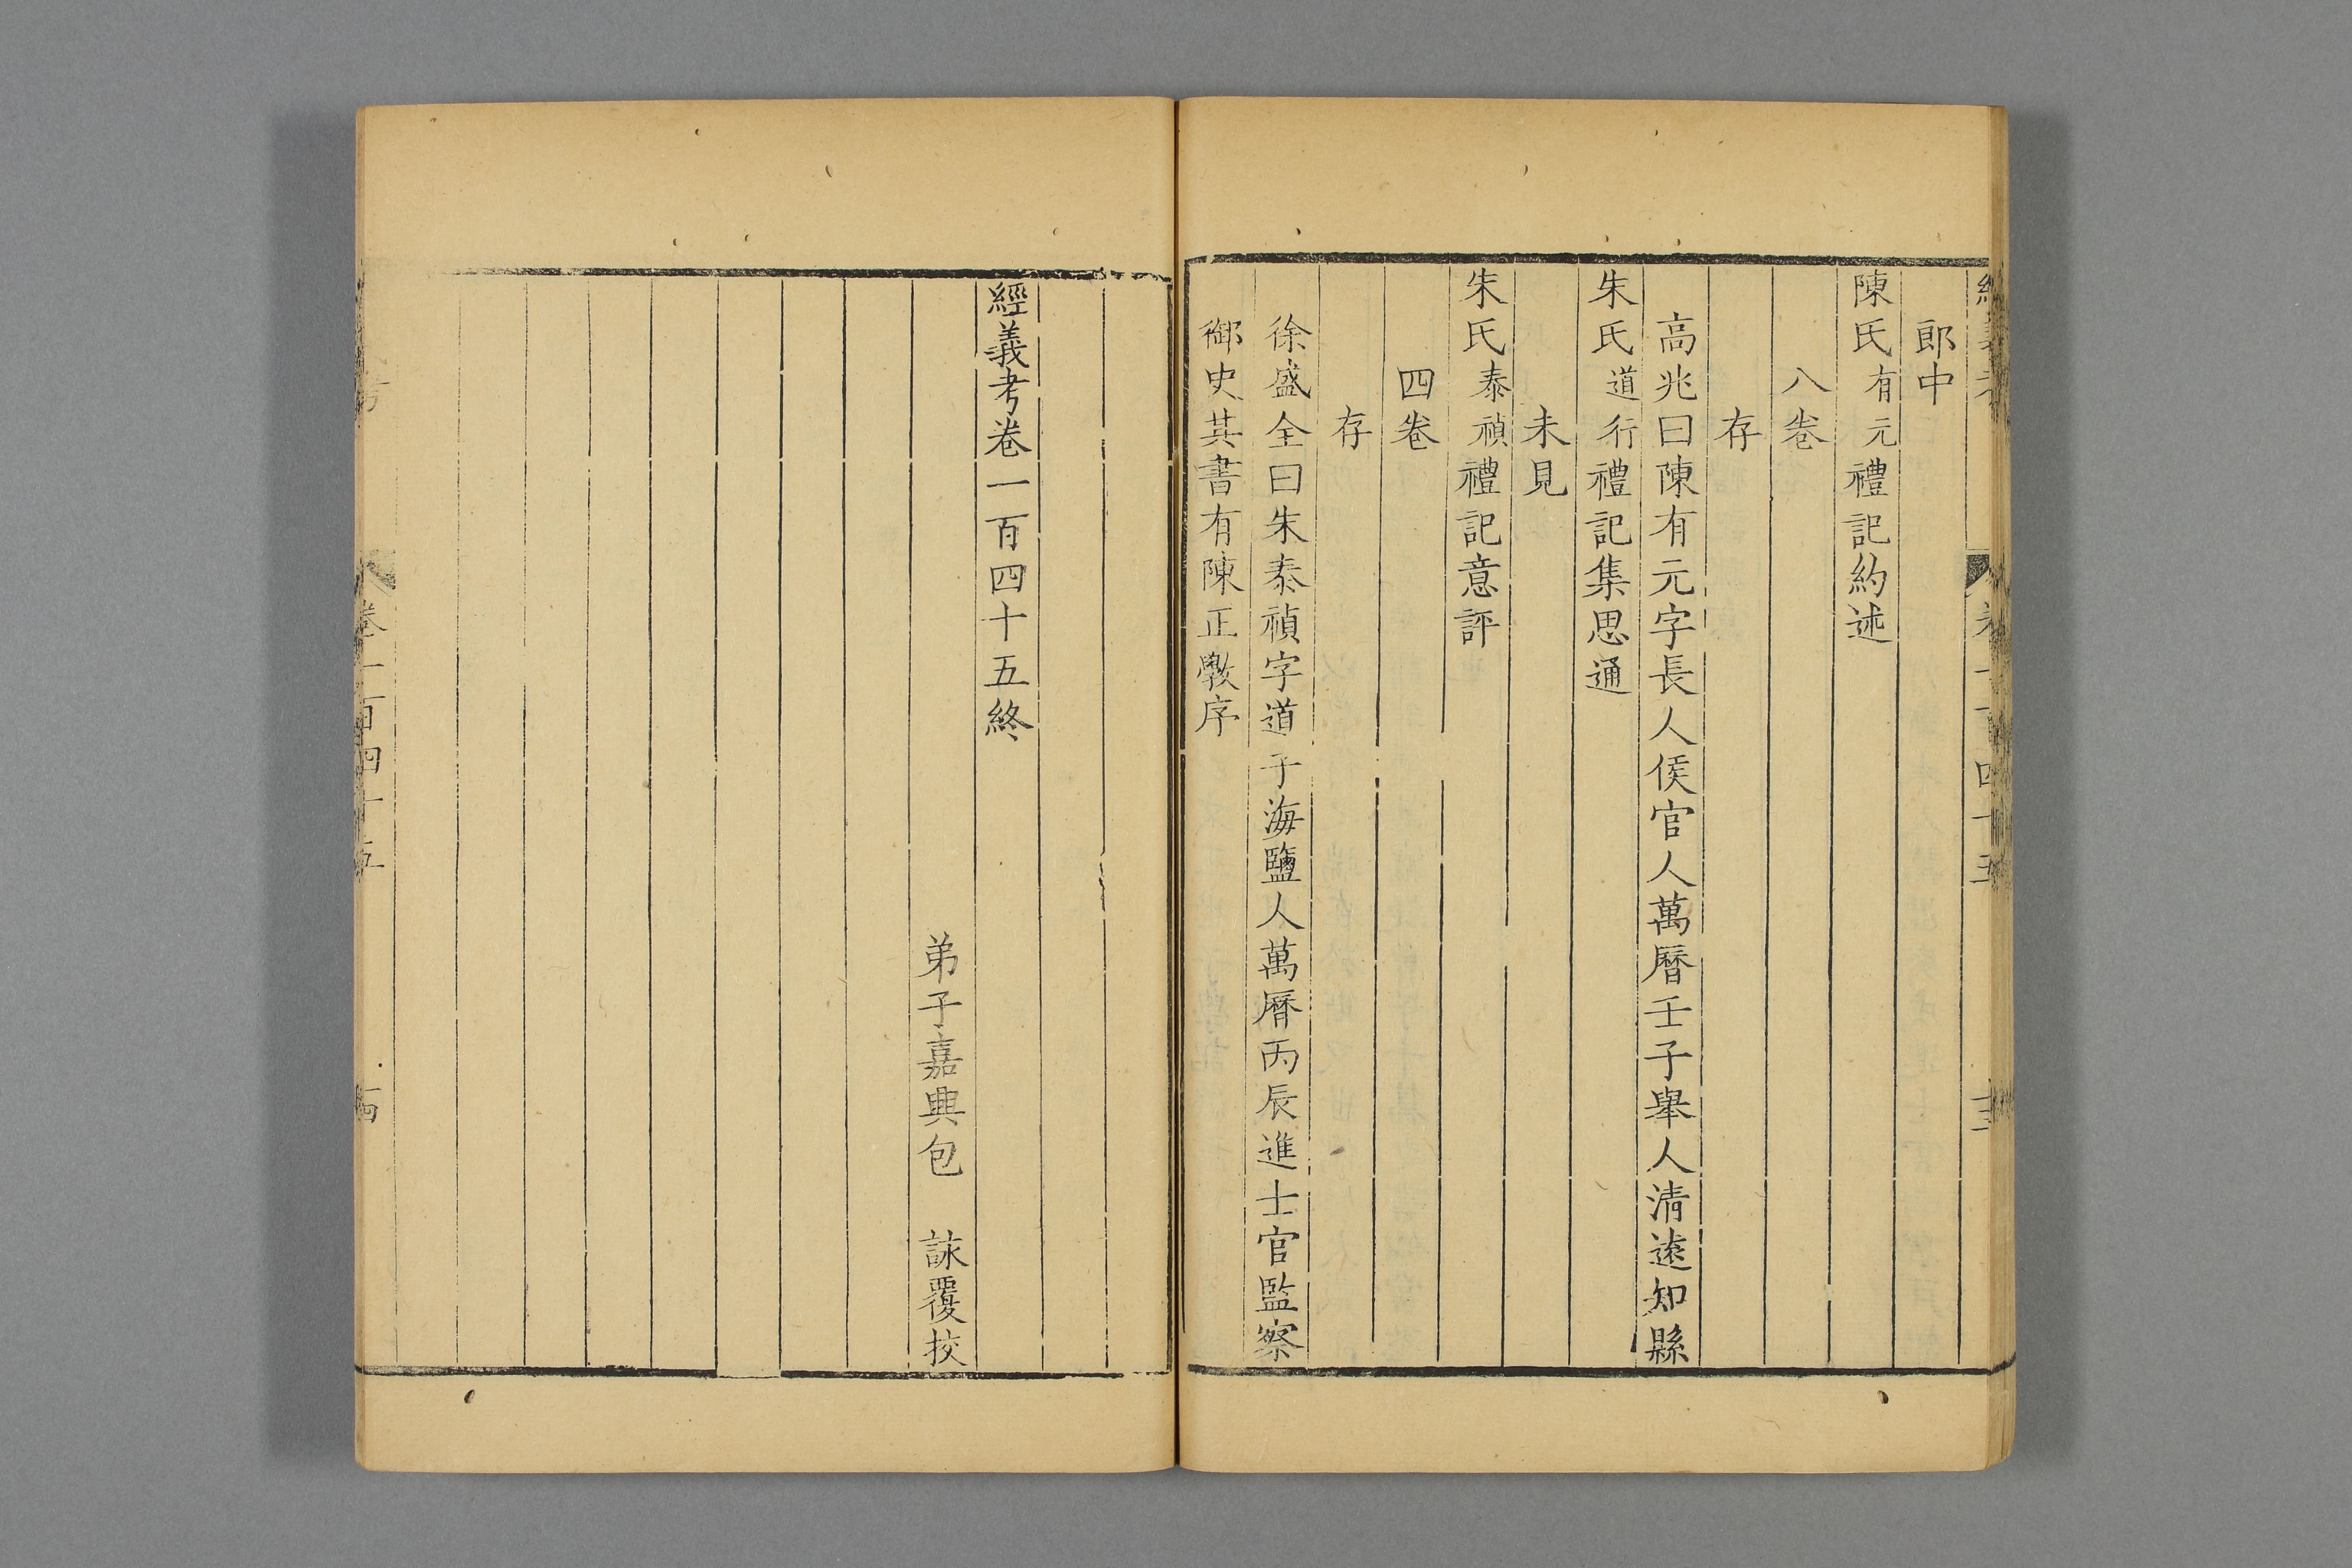 郎中
陳氏有元禮記約述
八卷
存
高兆曰陳有元字長人侯官人萬曆壬子舉人清遠知縣
朱氏道行禮記集思通
未見
朱氏泰禎禮記意評
四卷
存
徐盛全曰朱泰禎字道子海鹽人萬曆丙辰進士官監察
御史其書有陳正斆序
經義考卷一百四十五終
弟子嘉興包 詠覆挍
卷一百四十五